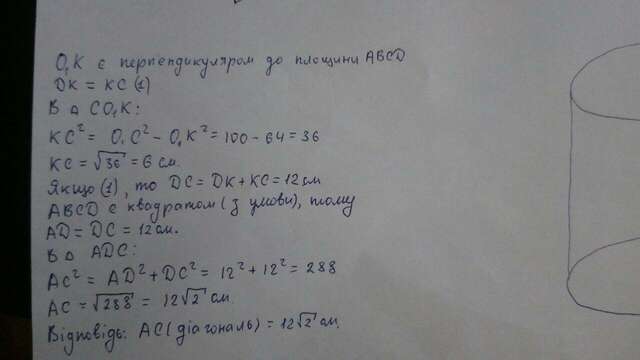 O₁K є перпендикуляром до площини ABCD
DK = KC (1)
В △ CO₁K:
KC² = O₁C² - O₁K² = 100 - 64 = 36
KC = √36 = 6 см.
Якщо (1), то DC = DK + KC = 12 см
ABCD є квадратом (з умови), тому
AD = DC = 12 см.
В △ ADC:
AC² = AD² + DC² = 12² + 12² = 288
AC = √288 = 12√2 см.
Відповідь: AC (діагональ) = 12√2 см.